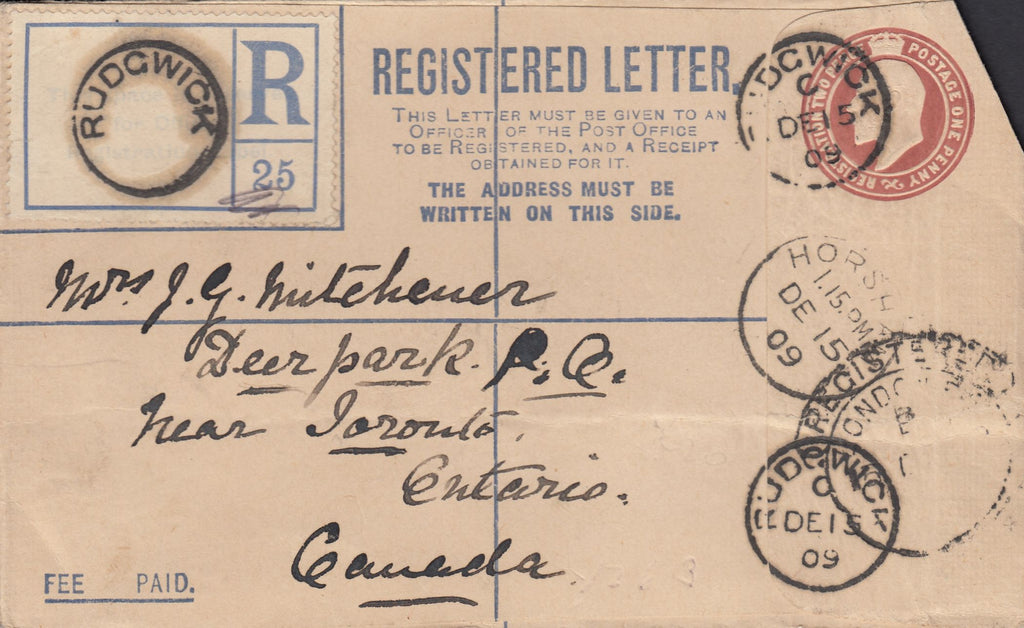 RUDGWICK
R
25
REGISTERED LETTER.
THIS LETTER MUST BE GIVEN TO AN
OFFICER OF THE POST OFFICE
TO BE REGISTERED, AND A RECEIPT
OBTAINED FOR IT.
THE ADDRESS MUST BE
WRITTEN ON THIS SIDE.
REGISTRATION TWO PENCE POSTAGE ONE PENNY
RUDGWICK
C
DE 15
09
Mrs J. G. Mitchener
Deer park. P.O.
Near Toronto.
Ontario.
Canada
HORSHAM
1.15 PM
DE 15
09
REGISTERED
LONDON
RUDGWICK
C
DE 15
09
FEE PAID.